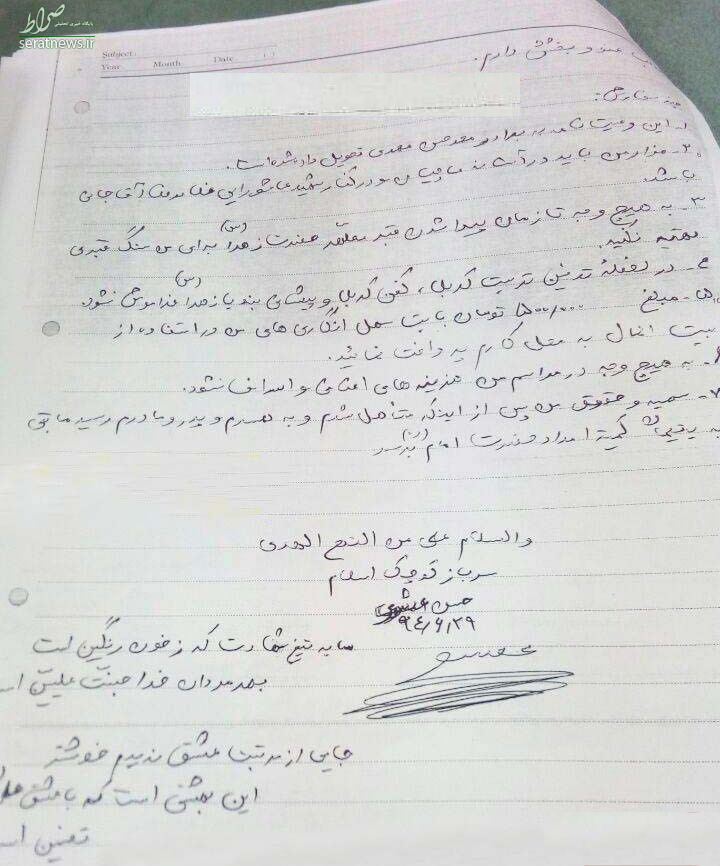 صراط
پایگاه خبری تحلیلی
seratnews.ir
Subject:
Year Month Date ( )
عفو و بخشش دارم.
چند سفارش:
۱- این وصیت نامه به برادر معدی تحویل داده شده است.
۲- مزار من باید در آستانه و در کنار شهید عاشورایی غلامرضا آقاجانی
باشد.
۳- به هیچ وجه تا زمان پیدا شدن قبر مطهر حضرت زهرا (س) برای من سنگ قبری
تهیه نکنید.
۴- در لحظهٔ تدفین تربت کربلا، کفن کربلا و پیشانی بند یا زهرا (س) فراموش نشود.
۵- مبلغ ۵۰۰/۰۰۰ تومان بابت سهل انگاری های من در استفاده از
بیت المال به محل کارم پرداخت نمائید.
۶- به هیچ وجه در مراسم من هزینه های اضافی و اسراف نشود.
۷- سهمیه و حقوق من پس از اینکه متأهل شدم و به همسرم و پدر و مادرم رسید مابقی
به یتیمان کمیته امداد حضرت امام (ره) برسد
والسلام علی من التبع الهدی
سرباز کوچک اسلام
حسن
۹۴/۶/۲۹
سایه تیغ شهادت که ز خون رنگین است
بهر مردان خدا جنت علیین
جایی از تربت عشق ندیدم خوشتر
این بهشتی است که با عشق